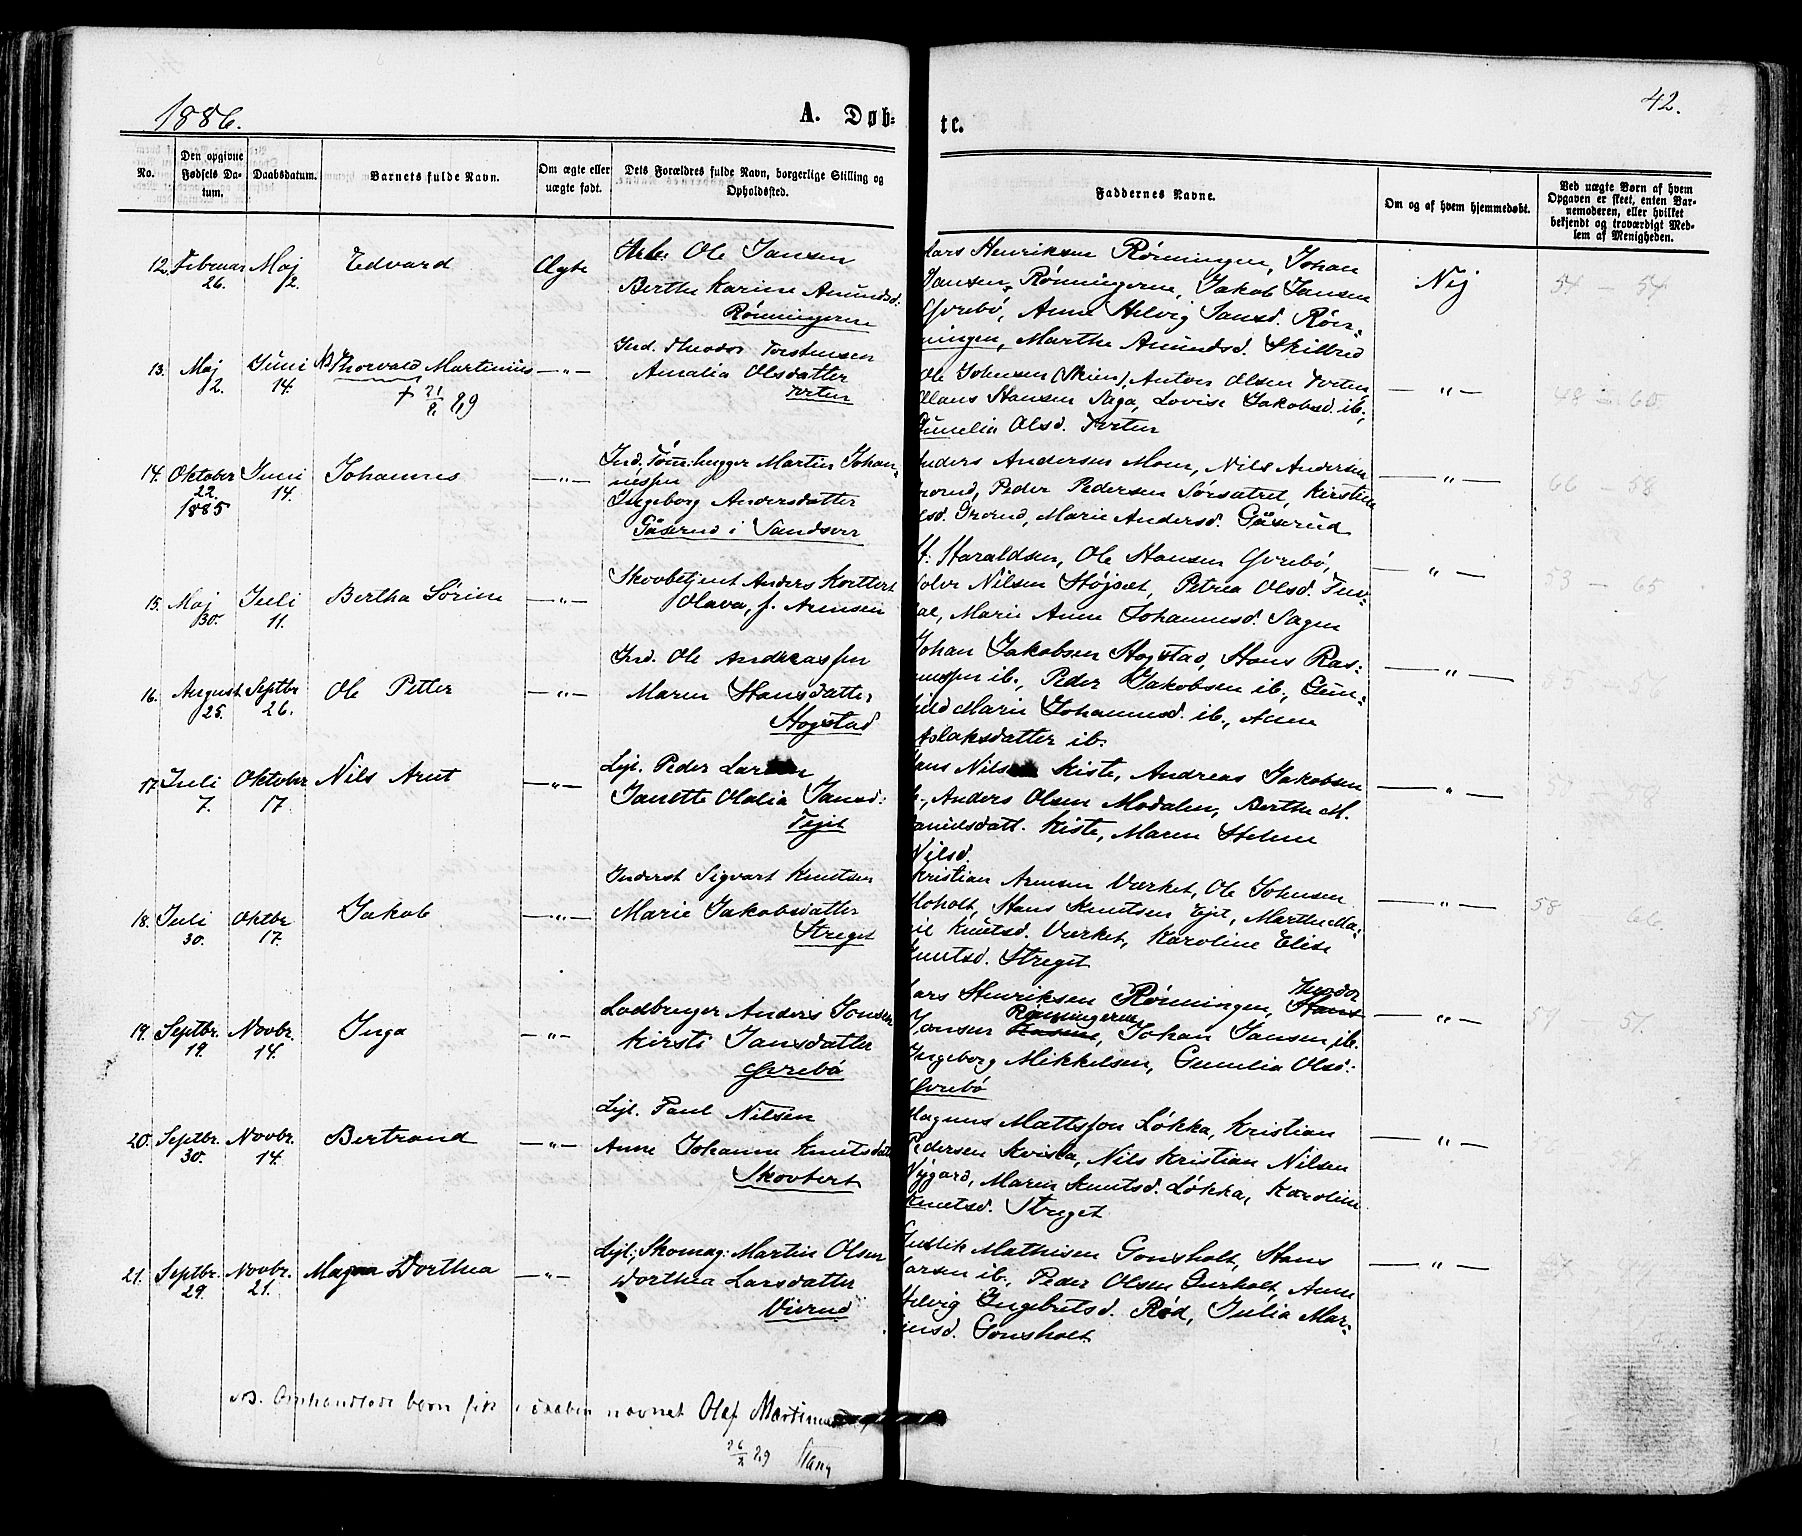 1886.
A. Døb-
te.
42.
No.
Den opgivne Fødsels Datum.
Daabsdatum.
Barnets fulde Navn.
Om ægte eller uægte født.
Dets Forældres fulde Navn, borgerlige Stilling og Opholdssted.
Faddernes Navne.
Om og af hvem hjemmedøbt.
Ved uægte Børn af hvem Opgaven er skeet, enten Barnemoderen, eller hvilket bekjendt og troværdigt Medlem af Menigheden.
12. Februar 26. Maj 2. Edvard Ægte
Ole Jansen
Berthe Karine Amundsd:
Rönningerne
Lars Henriksen Rönningen, Johan
Jansen, Rönningerne, Jakob Jansen
Gvrebö, Anne Helvig Jansd. Rön-
ningen, Marthe Amundsd. Skilbred
Nej
54 — 54
13. Maj 2. Juni 14. NB Thorvald Martinius — " —
+ 21/2 89
Ind. Theodor Torstensen
Amalia Olsdatter
Tveten
Ole Johnsen (Skien), Anton Olsen Tveten,
Klaus Hansen Saga, Lovise Jakobsd. ib.,
Gunelia Olsd. Tveten
— " —
48 — 60
14. Oktober 22. 1885 Juni 14. Johannes — " —
Ind. Tömhugger Martin Johan-
nessen
Ingeborg Andersdatter
Gåserud i Sandsver
Anders Andersen Moen, Nils Andersen
Grorud, Peder Pedersen Sörsætret, Kirstine
Olsd. Grorud, Marie Andersd. Gåserud
— " —
66 — 58
15. Maj 30. Juli 11. Bertha Sörine — " —
Skovbetjent Anders Kortterö
Olava, f. Arnesen
H. Haraldsen, Ole Hansen Gvrebö,
Tolve Nilsen Höjset, Petrea Olsd. Fur-
Marie Anne Johannesd. Sagen
— " —
53 — 65
16. August 25. Septbr 26. Ole Petter — " —
Ind. Ole Andreassen
Maren Hansdatter
Hogstad
Johan Jakobsen Hogstad, Hans Ras-
mussen ib., Peder Jakobsen ib., Gun-
hild Marie Johannesd. ib., Anne
Aslaksdatter ib.
— " —
17. Juli 7. Oktober 17. Nils Arnt — " —
Lejl. Peder Larsen
Janette Olalia Jansd:
Tejet
Hans Nilsen Kiste, Andreas Jakobsen
ib., Anders Olsen Modalen, Berthe M.
Danielsdatt. Kiste, Maren Helene
Nilsd.
— " —
18. Juli 30. Oktbr 17. Jakob — " —
Inderst Sigvart Knutsen
Marie Jakobsdatter
Streget
Kristian Arnesen Værket, Ole Johnsen
Moholt, Hans Knutsen Ejet, Marthe Ma-
rie Knutsd. Værket, Karoline Elise
Knutsd. Streget
— " —
58 66.
19. Septbr. 19. Novbr. 14. Inga — " —
Ladbruger Anders Jonsen
Kirsti Jansdatter
Gvrebö
Lars Henriksen Rönningen, Theodor
Jansen Rönningerne, Johan Jansen ib.
Ingeborg Mikkelsen, Gunelia Olsd:
Gvrebö
— " —
57 57.
20. Septbr. 30. Novbr. 14. Bertrand — " —
Lejl. Paul Nilsen
Anne Johanne Knutsdatt
Skovbert
Magnus Mattsson Lökka, Kristian
Pedersen Kvisla, Nils Kristian Nilsen
Nygård, Maren Knutsd. Lökka, Karoline
Knutsd. Streget
— " —
21. Septbr. 29. Novbr. 21. Magna Dorthea — " —
Lejl., Skomag: Martin Olsen
Dorthea Larsdatter
Vierud
Fredrik Mathisen Gonsholt, Hans
Larsen ib., Peder Olsen Gurholt, Anne
Helvig Ingebretsd. Röd, Julia Mar-
tinsd. Gonsholt
— " —
NB. Omhandlede barn fik i daaben navnet Olaf Martinius
26/2 89 Stang